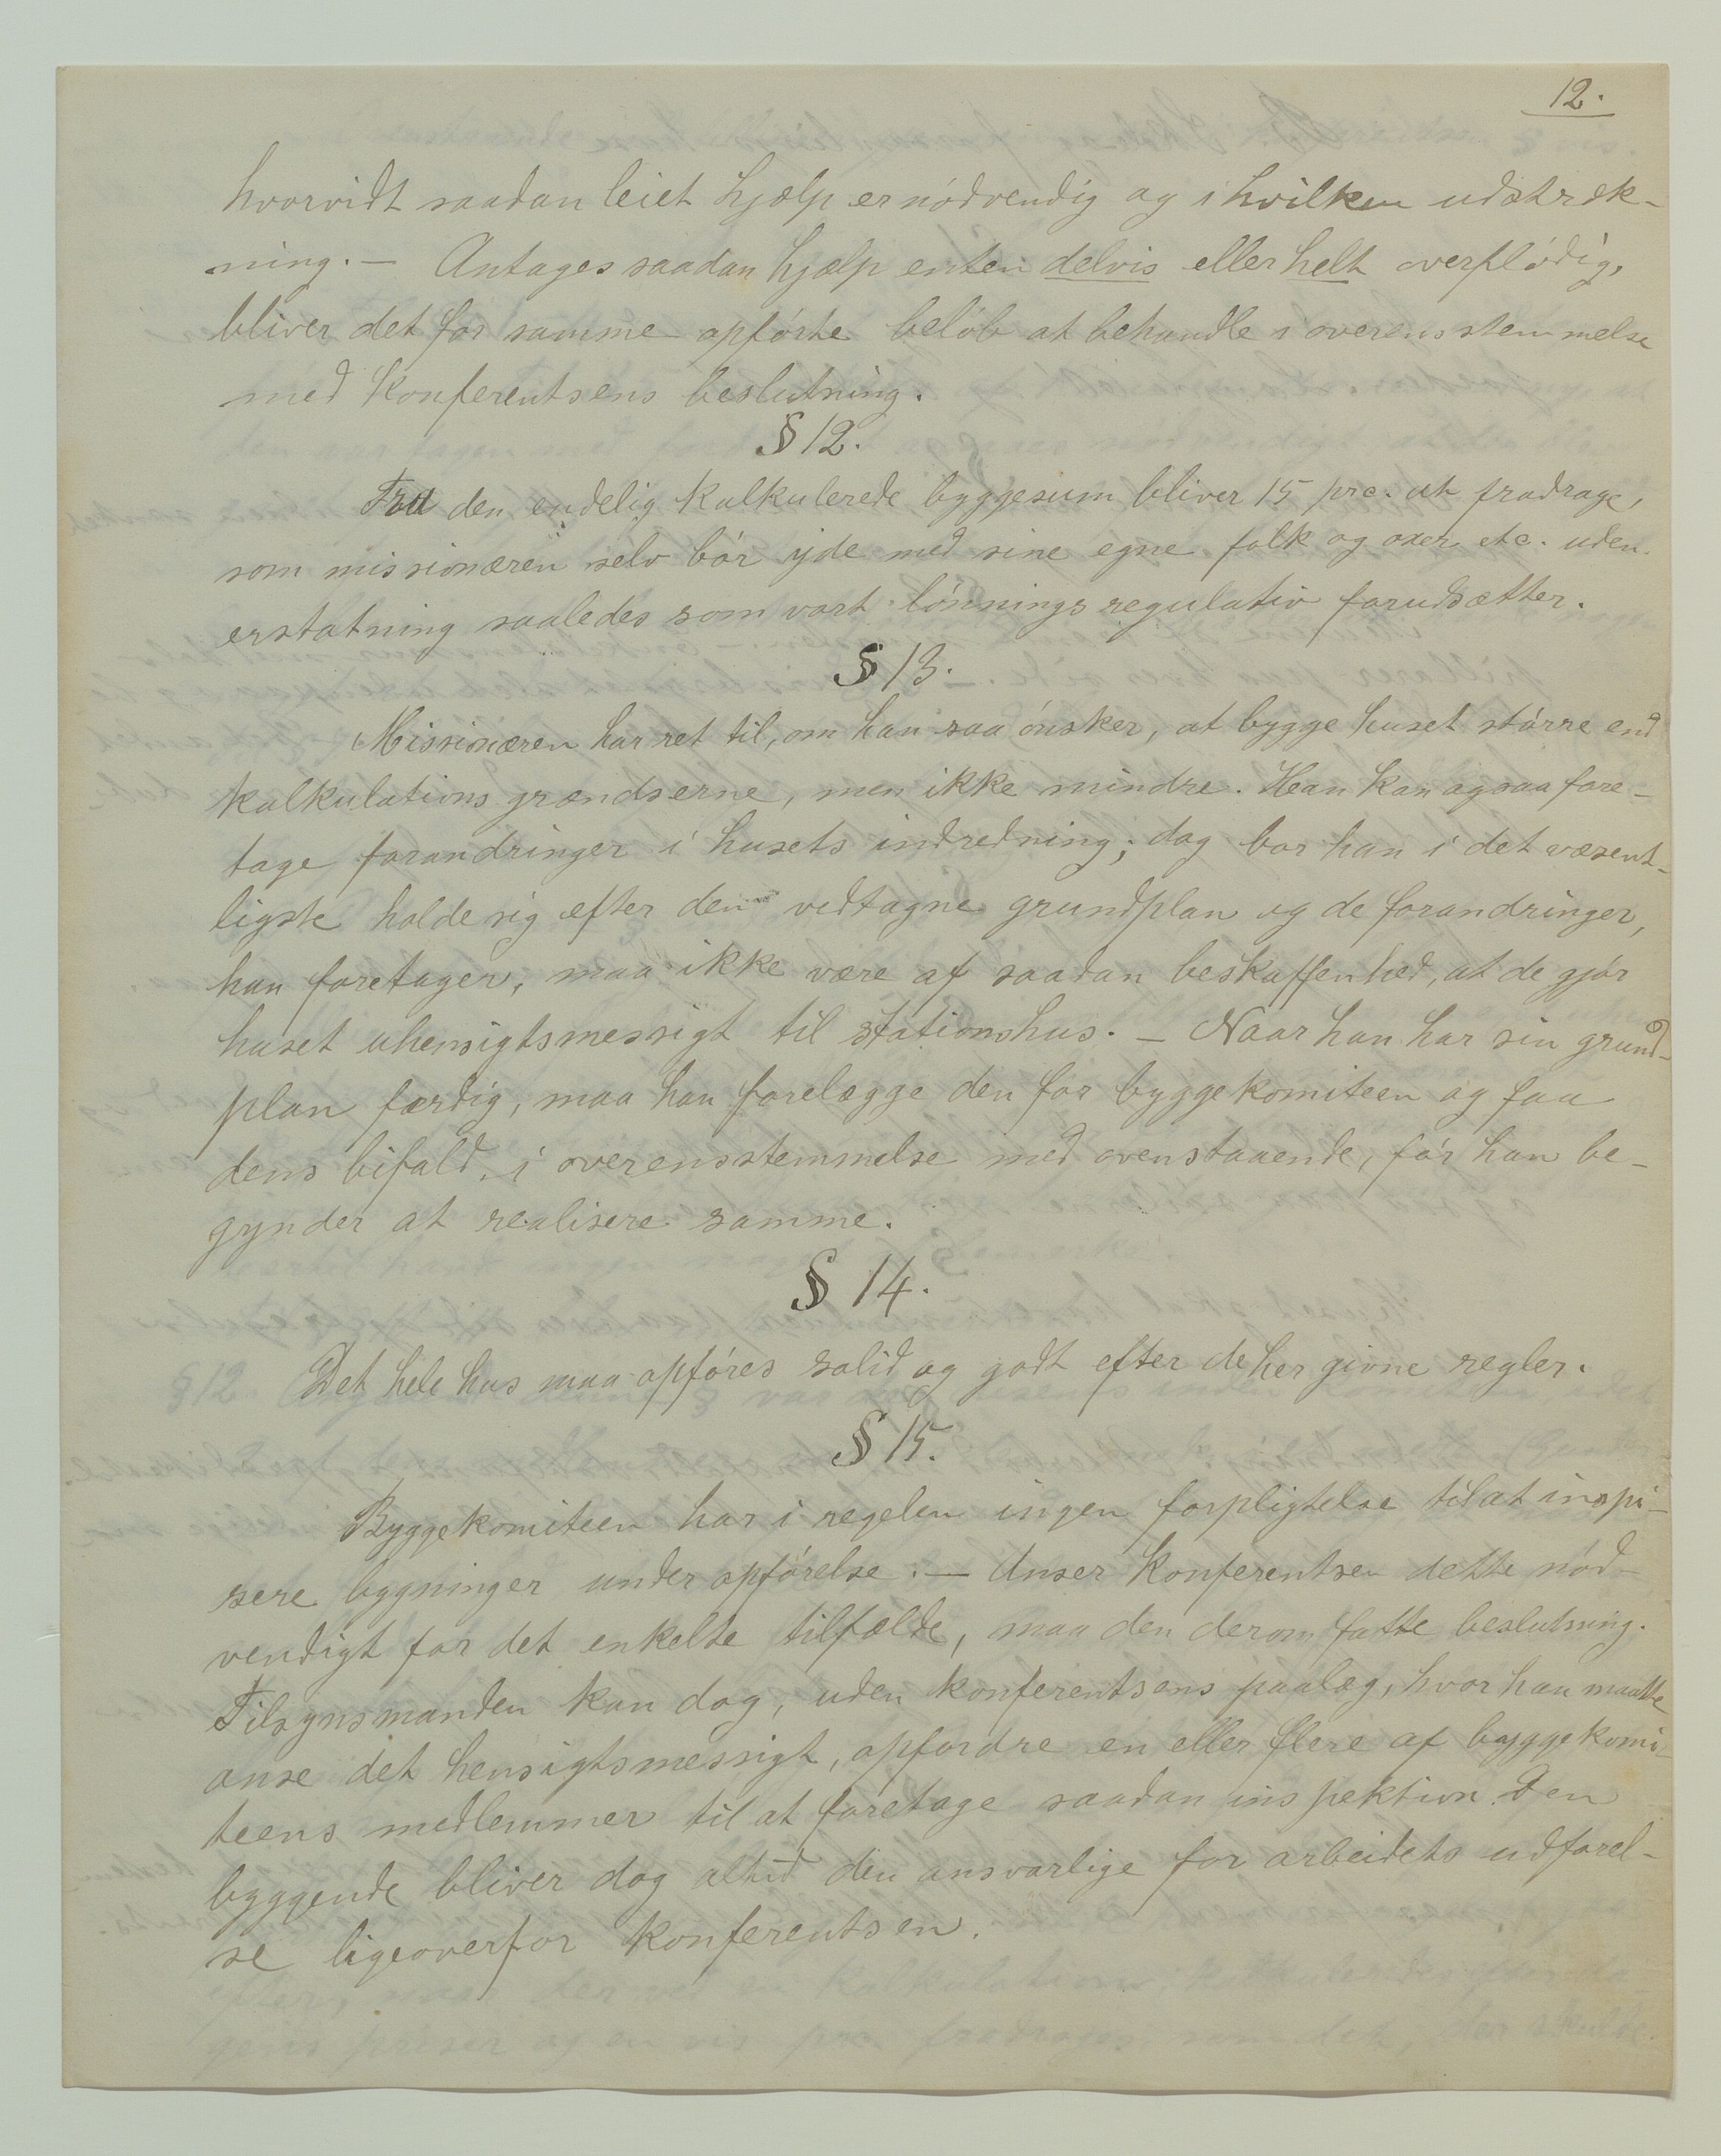 12.
hvorvidt saadan leiet hjælp er nødvendig og i hvilken udstræk-
ning. — Antages saadan hjælp enten delvis eller helt overflødig,
bliver det for samme opførte beløb at behandle i overensstemmelse
med Konferentsens beslutning.
§ 12.
Fra den endelig kalkulerede byggesum bliver 15 prc. at fradrage,
som missionæren selv bør yde med sine egne folk og oxer etc. uden
erstatning saaledes som vort lønningsregulativ forudsætter.
§ 13.
Missionæren har ret til, om han saa ønsker, at bygge huset større end
kalkulationsgrændserne, men ikke mindre. Han kan ogsaa fore-
tage forandringer i husets indredning; dog bør han i det væsent-
ligste holde sig efter den vedtagne grundplan og de forandringer,
han foretager, maa ikke være af saadan beskaffenhed, at de gjør
huset uhensigtsmessigt til stationshus. — Naar han har sin grund-
plan færdig, maa han forelægge den for byggekomiteen og faa
dens bifald, i overensstemmelse med ovenstaaende, før han be-
gynder at realisere samme.
§ 14.
Det hele hus maa opføres solid og godt efter de her givne regler.
§ 15.
Byggekomiteen har i regelen ingen forpligtelse til at inspi-
sere bygninger under opførelse. — Anser Konferentsen dette nød-
vendigt for det enkelte tilfælde, maa den derom fatte beslutning.
Tilsynsmanden kan dog, uden konferentsens paalæg, hvor han maatte
anse det hensigtsmessigt, opfordre en eller flere af byggekomi-
teens medlemmer til at foretage saadan inspektion. Den
byggende bliver dog altid den ansvarlige for arbeidets udførel-
se ligeoverfor konferentsen.